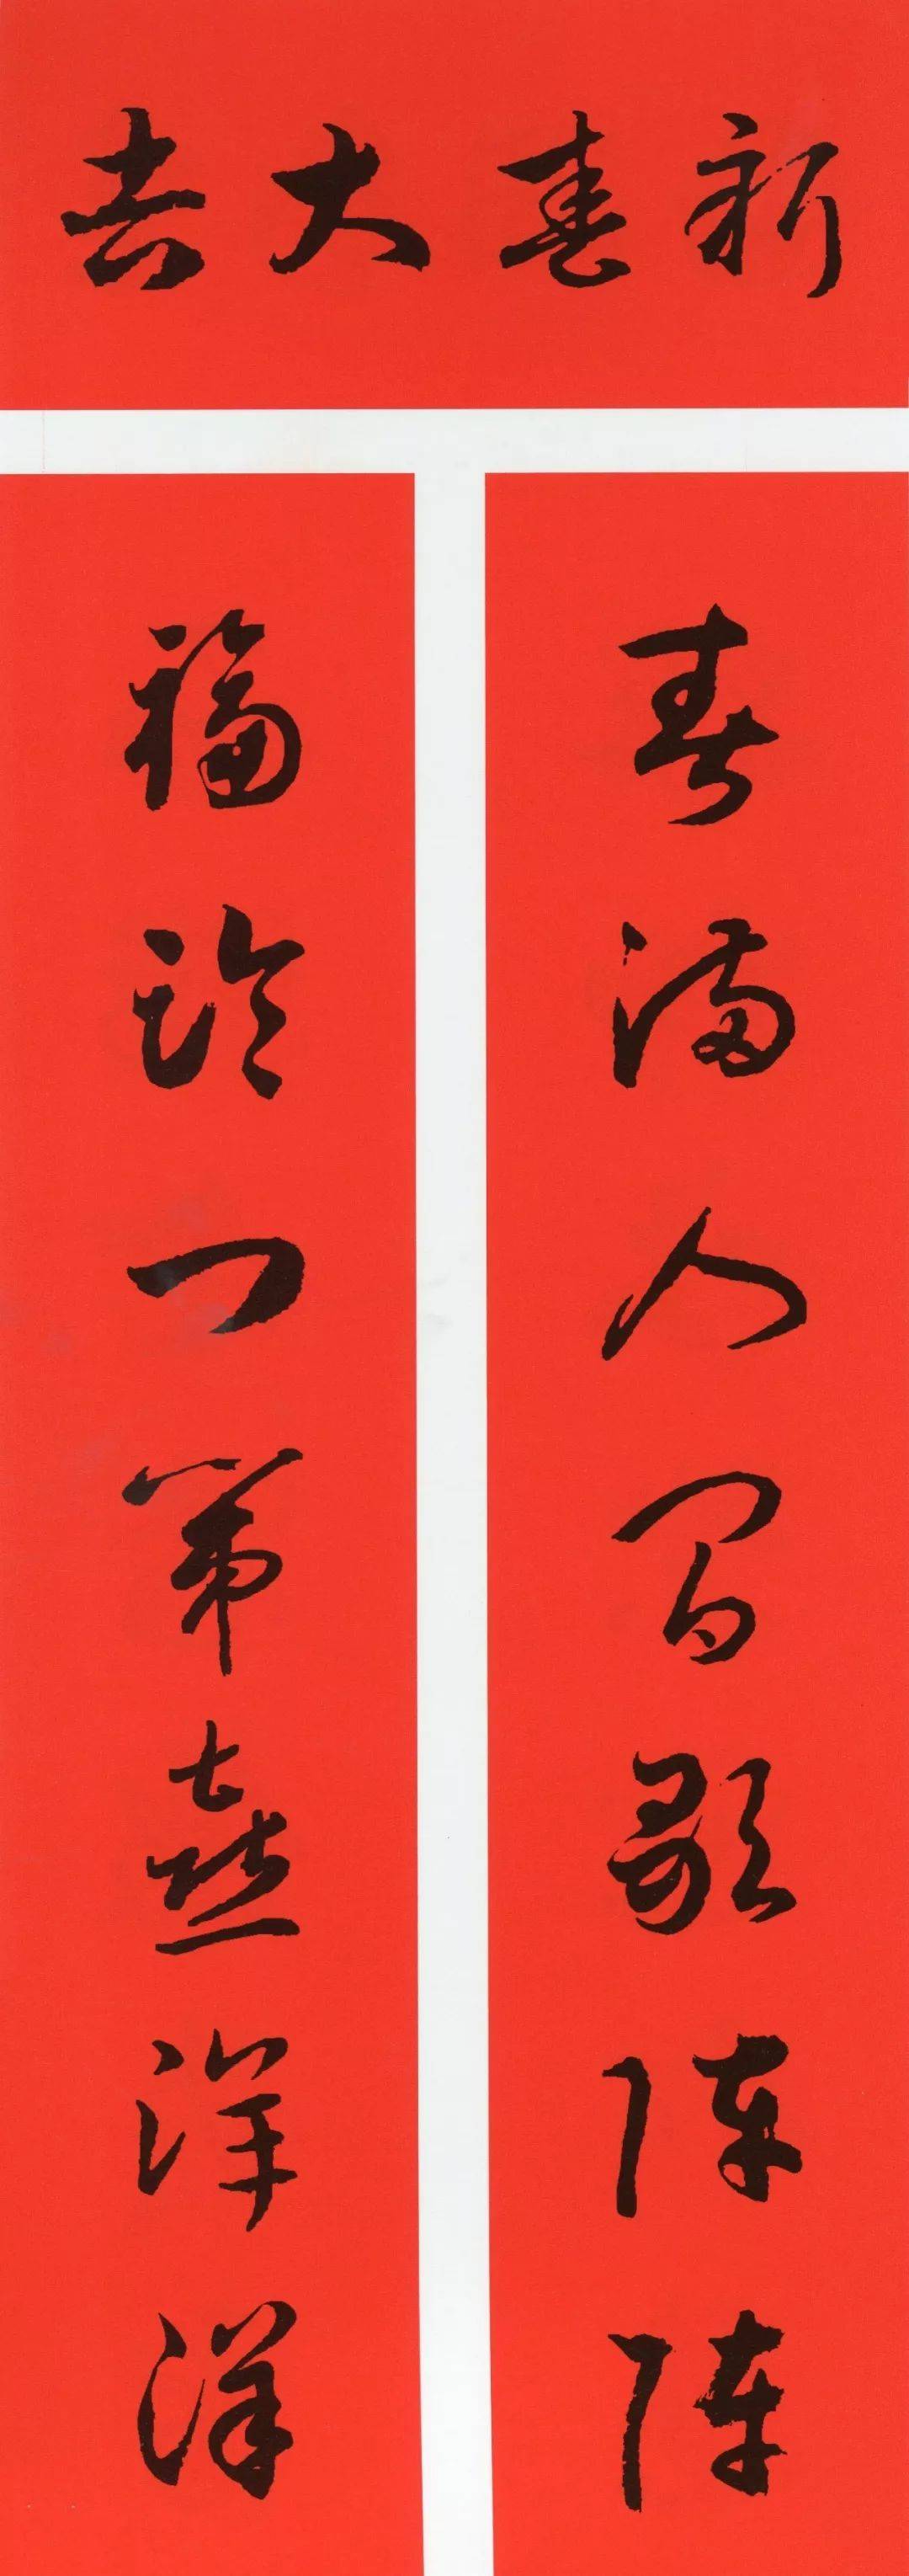 新春大吉
春满人间歌阵阵
福临门第喜洋洋